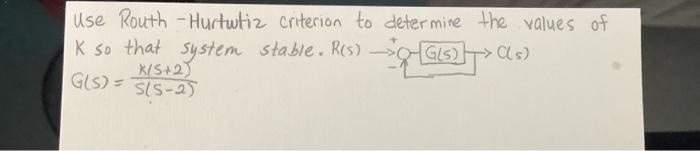 Use Routh - Hurtwtiz criterion to determine the values of
K so that system stable. R(s) + - G(s) C(s)
G(s) = K(S+2) / S(S-2)